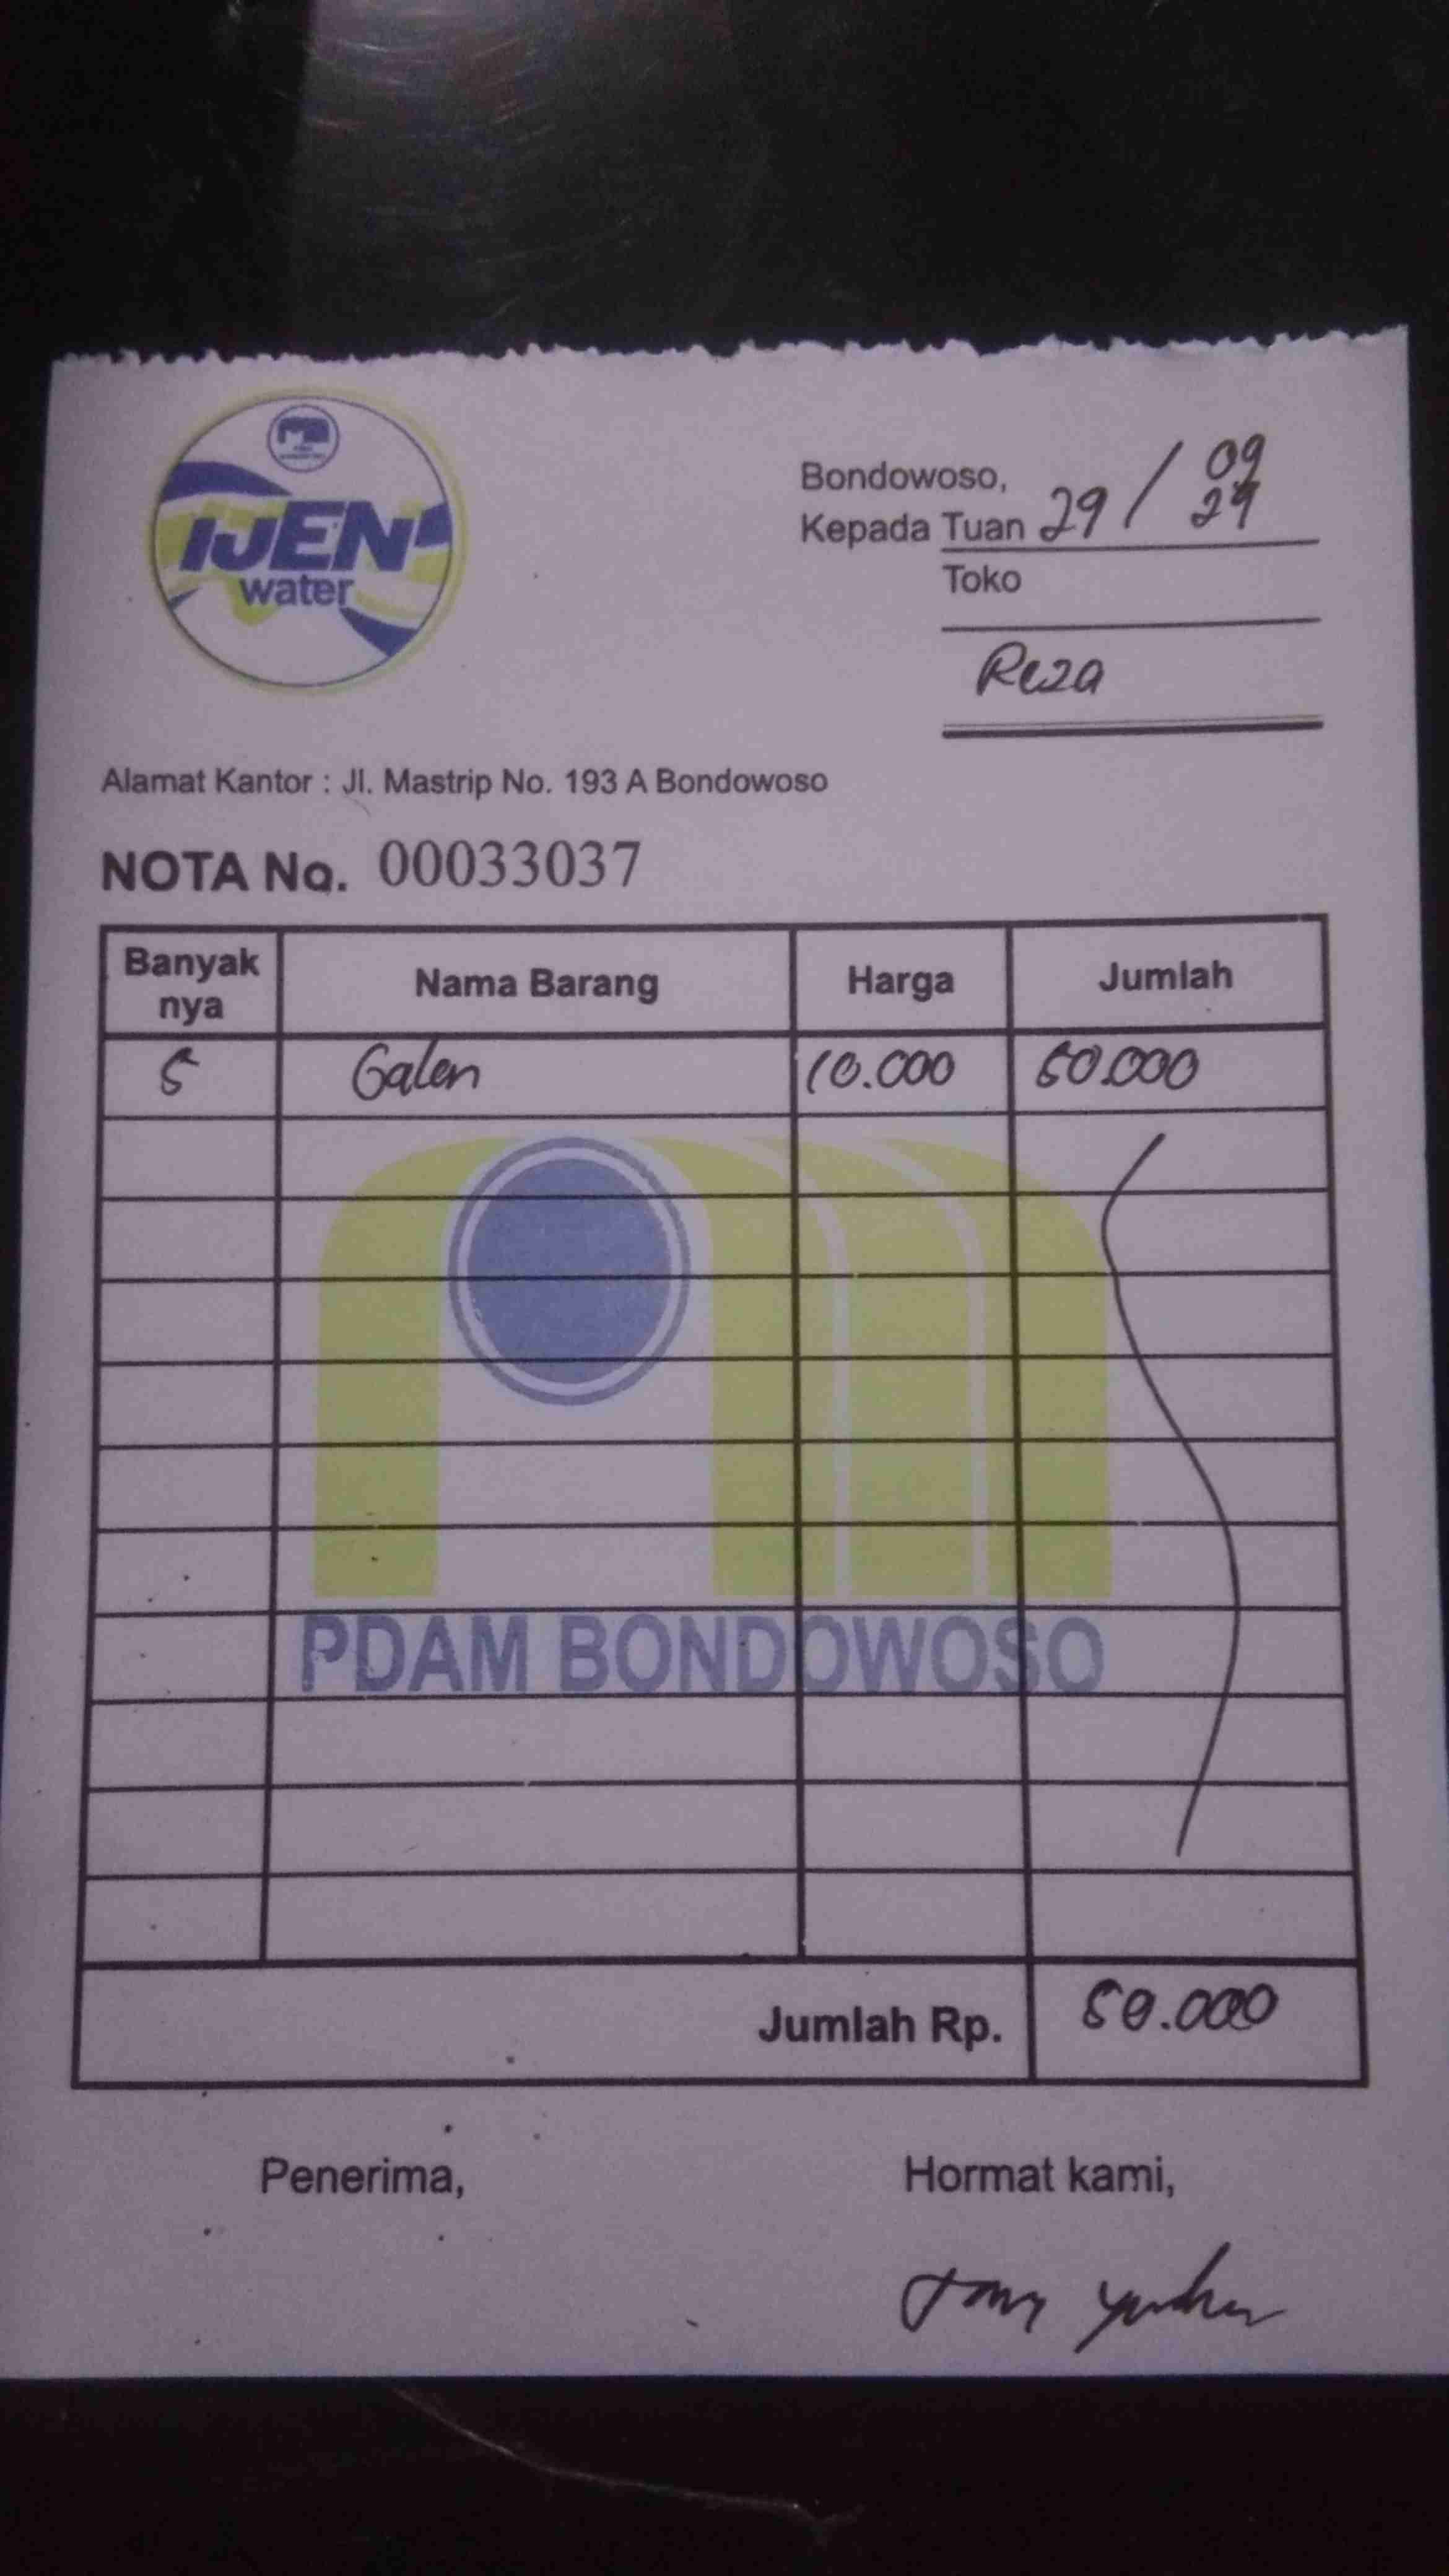 IJEN
water
Bondowoso,
29 / 09
24
Kepada Tuan
Toko
Reza
Alamat Kantor : Jl. Mastrip No. 193 A Bondowoso
NOTA No. 00033037
Banyak nya Nama Barang Harga Jumlah
5 Galon 10.000 50.000
PDAM BONDOWOSO
Jumlah Rp. 50.000
Penerima, Hormat kami,